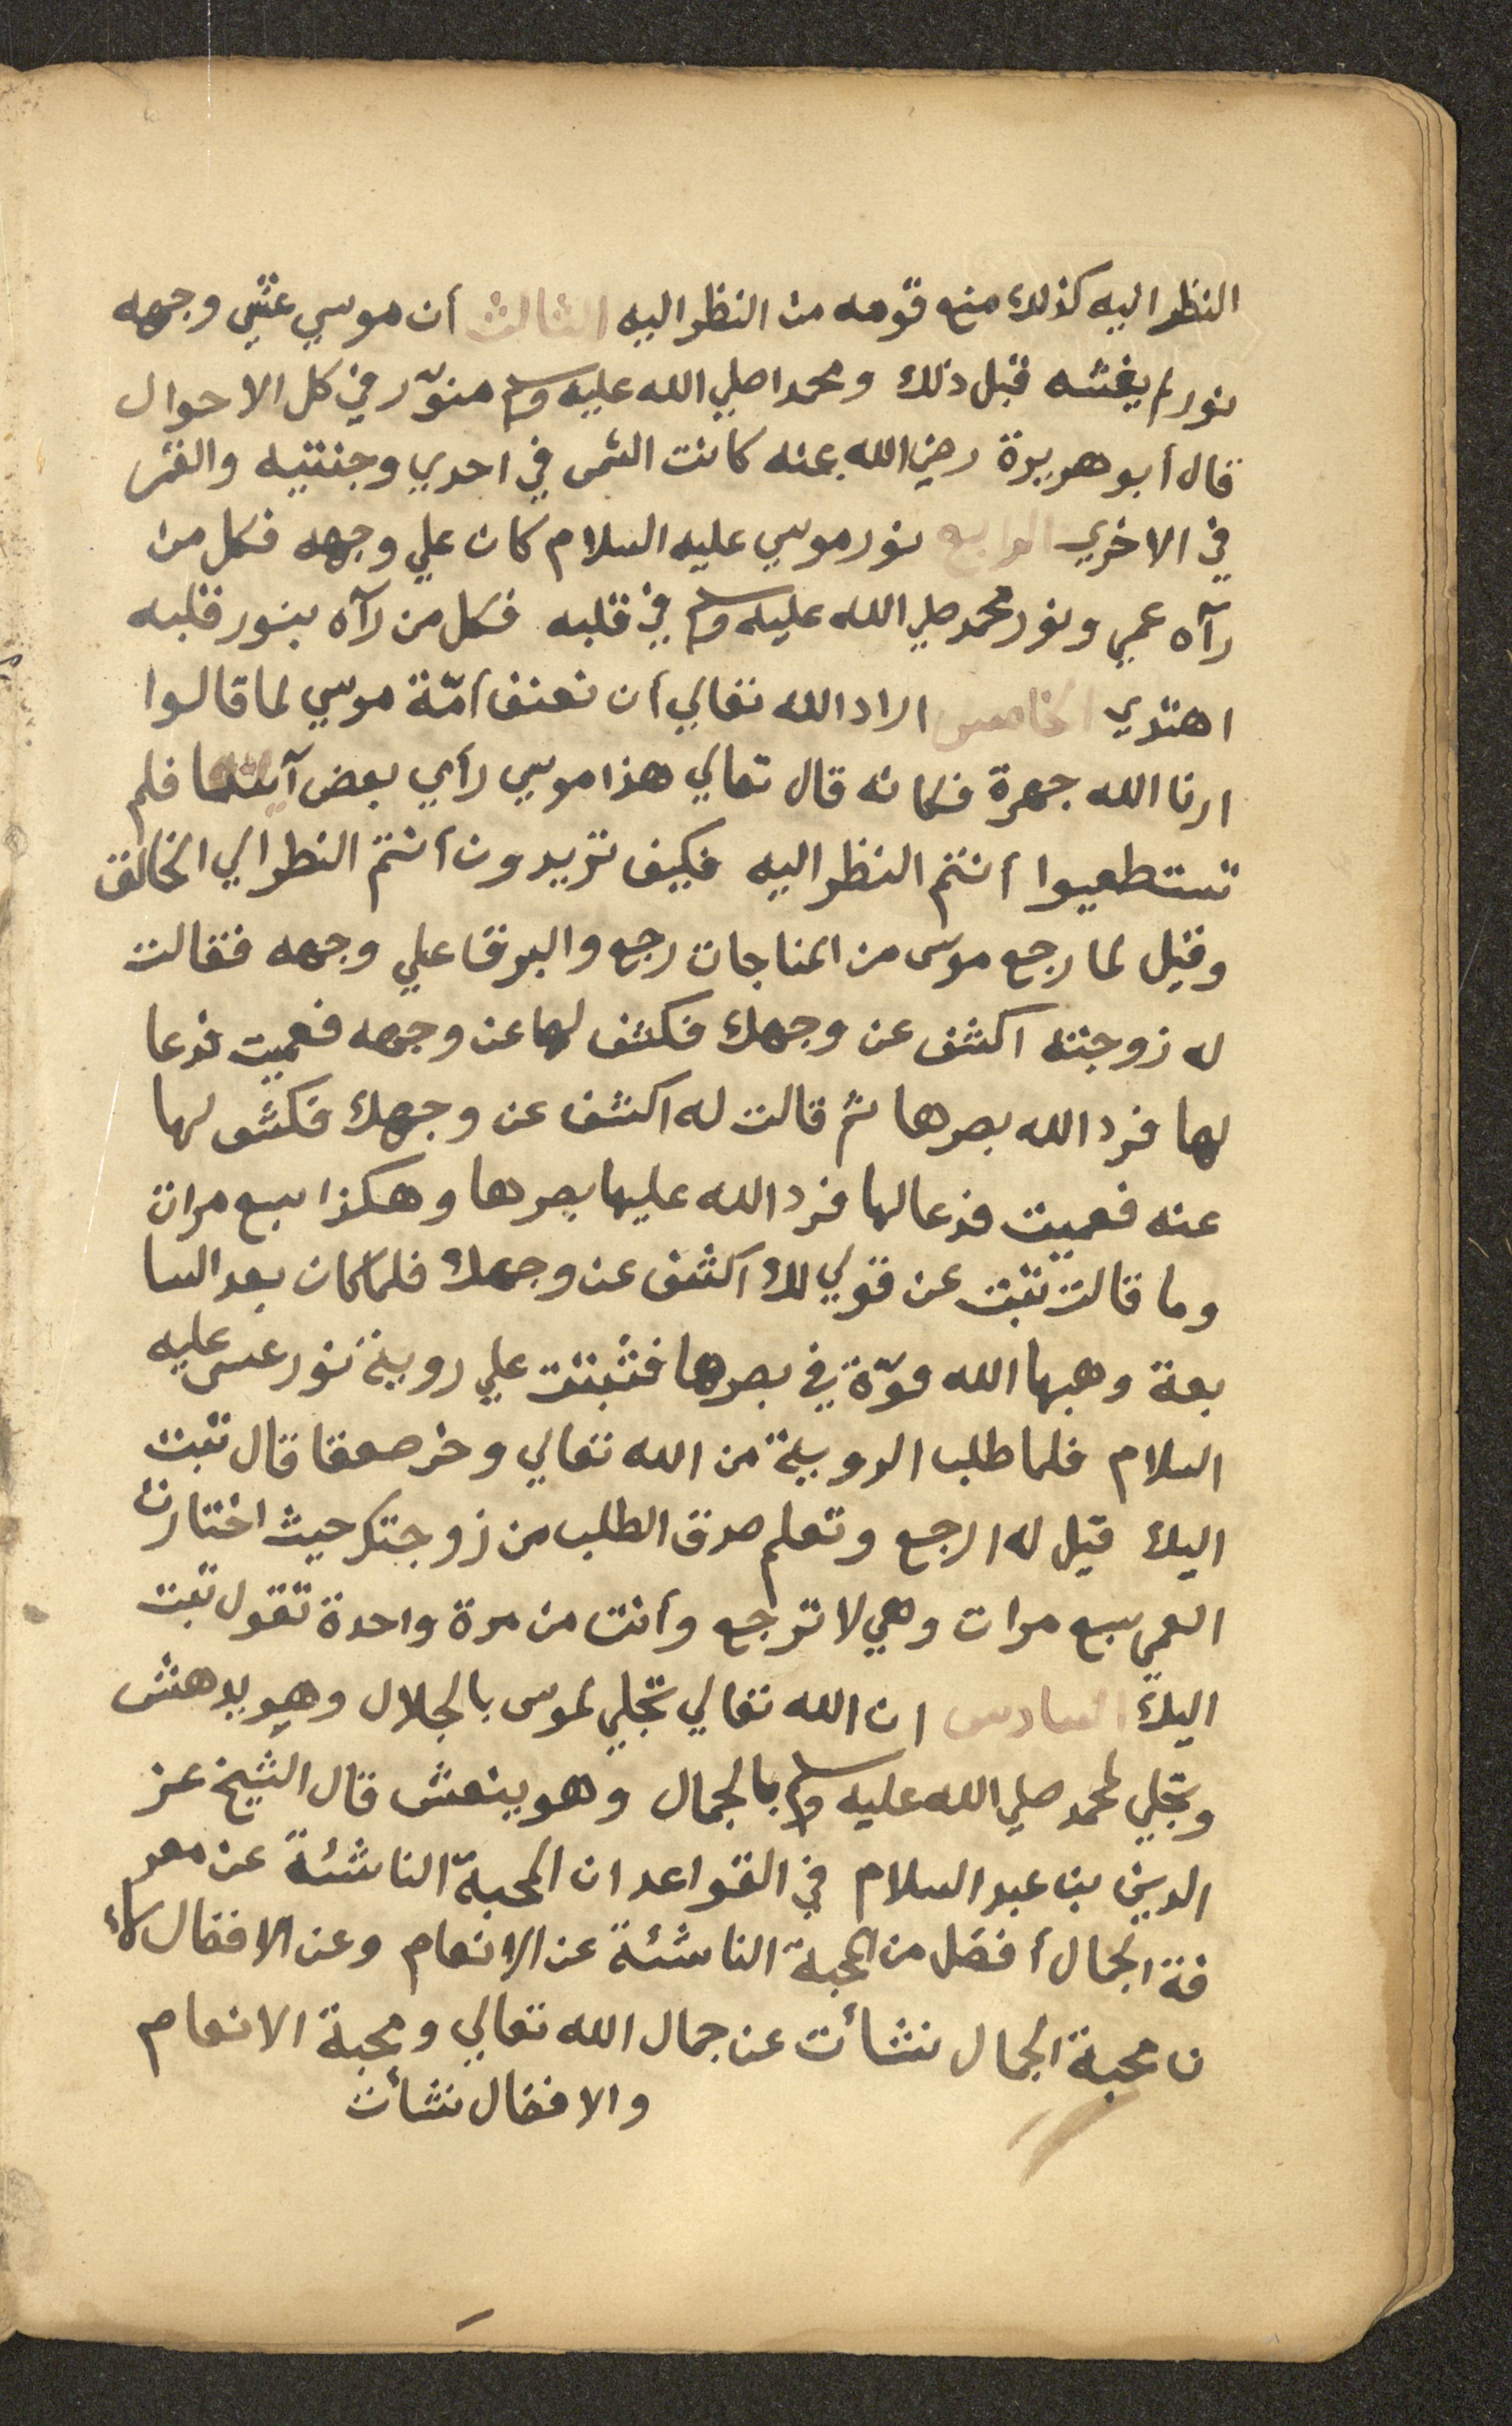 النظر اليه كذلك منع قومه من النظر اليه الثالث أن موسي غشي وجهه
نور لم يغشه قبل ذلك ومحمدا صلي الله عليه وسلم منوّر في كل الاحوال
قال أبو هريرة رضي الله عنه كانت الشمس في احدي وجنتيه والقمر
في الاخري الرابع نور موسي عليه السلام كان علي وجهه فكل من
رآه عمي ونور محمد صلي الله عليه وسلم في قلبه فكل من رآه بنور قلبه
اهتدي الخامس اراد الله تعالي أن تعنف أمّة موسي لما قالوا
ارنا الله جهرة فكانه قال تعالي هذا موسي رأي بعض فلم
تستطعيوا أنتم النظر اليه فكيف تريدون أنتم النظر الي الخالق
وقيل لما رجع موسى من المناجات رجع والبرقا علي وجهه فقالت
له زوجته اكشف عن وجهك فكشف لها عن وجهه فعميت فدعا
لها فرد الله بصرها ثم قالت له اكشف عن وجهك فكشف لها
عنه فعميت فدعا لها فرد الله عليها بصرها وهكذا سبع مرات
وما قالت تبت عن قولي لك اكشف عن وجهك فلما كان بعد السا
بعة وهبها الله قوّة في بصرها فثبتت علي روية نور عليه
السلام فلما طلب الروية من الله تعالي وخر صعقا قال تبت
اليك قيل له ارجع وتعلم صدق الطلب من زوجتك حيث اختارت
العمي سبع مرات وهي لا ترجع وأنت من مرة واحدة تقول تبت
اليك السادس ان الله تعالي تجلي لموسى بالجلال وهو يدهش
وتجلي لمحمد صلي الله عليه وسلم بالجمال وهو ينعش قال الشيخ عز
الدين بن عبد السلام في القواعد ان المحبة الناشئة عن معر
فة الجمال أفضل من المحبة الناشئة عن الانعام وعن الافضال لأ
ن محبة الجمال نشأت عن جمال الله تعالي ومحبة الانعام
والافضال نشأت